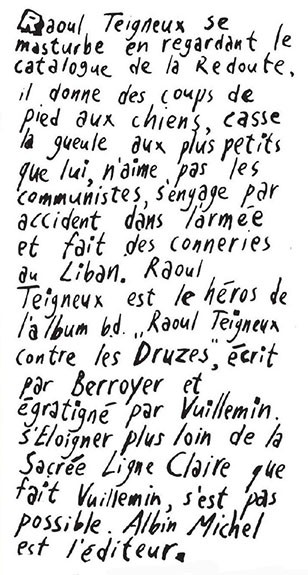 Raoul Teigneux se
masturbe en regardant le
catalogue de la Redoute,
il donne des coups de
pied aux chiens, casse
la gueule aux plus petits
que lui, n'aime pas les
communistes, s'engage par
accident dans l'armée
et fait des conneries
au Liban. Raoul
Teigneux est le héros de
l'album b.d. "Raoul Teigneux
contre les Druzes", écrit
par Berroyer et
égratigné par Vuillemin.
S'Eloigner plus loin de la
Sacrée Ligne Claire que
fait Vuillemin, s'est pas
possible. Albin Michel
est l'éditeur.